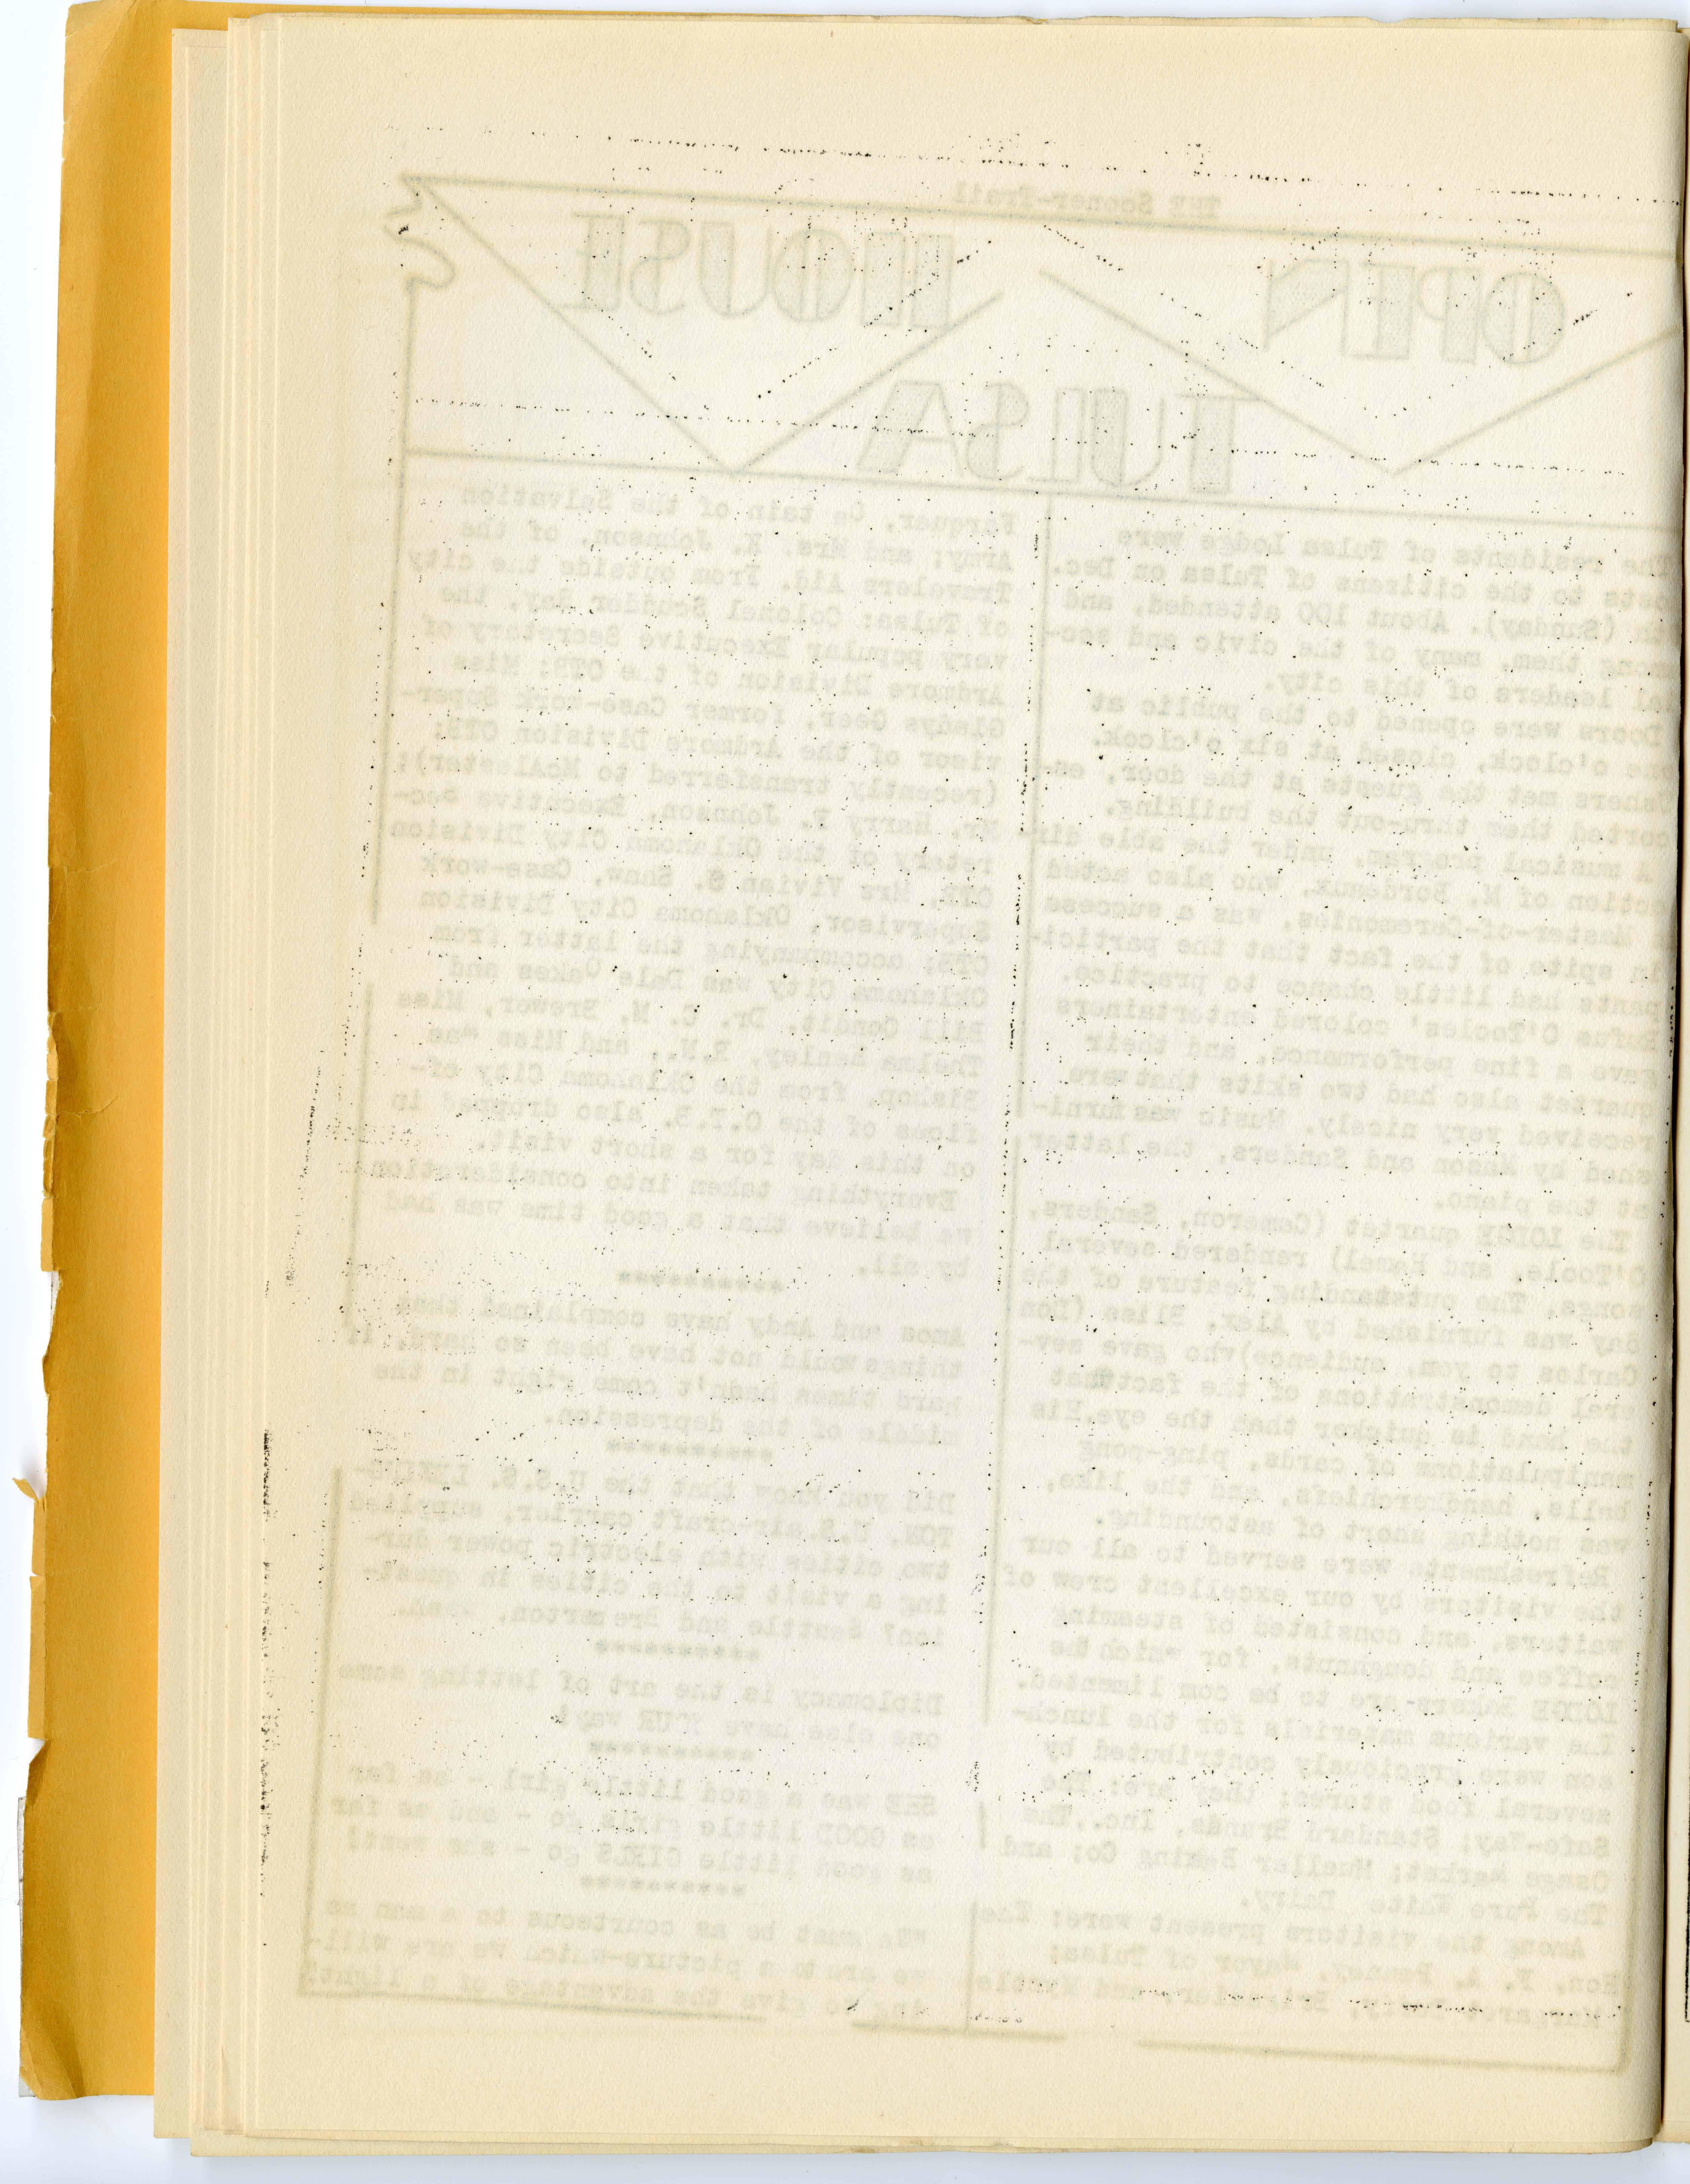 THE Sooner-Trail
OPEN HOUSE
TULSA
The residents of Tulsa Lodge were
to the citizens of Tulsa on Dec.
(Sunday). About 100 attended, and
among them, many of the civic and soc-
ial leaders of this city.
Doors were opened to the public at
one o'clock, closed at six o'clock.
Ushers met the guests at the door, es-
corted them thru-out the building.
A musical program, under the able dir-
ection of M. Bordeaux, who also acted
Master-of-Ceremonies, was a success
in spite of the fact that the partici-
pants had little chance to practice.
Rufus O'Tooles' colored entertainers
gave a fine performance, and their
quartet also had two skits that were
received very nicely. Music was furni-
shed by Mason and Sanders, the latter
at the piano.
The LODGE quartet (Cameron, Sanders,
O'Toole, and Hamel) rendered several
songs. The outstanding feature of the
day was furnished by Alex. Bliss (Don
Carlos to you, audience)who gave sev-
eral demonstrations of the fact that
the hand is quicker than the eye.His
manipulations of cards, ping-pong
balls, handkerchiefs, and the like,
was nothing short of astounding.
Refreshments were served to all our
the visitors by our excellent crew of
waiters, and consisted of steaming
coffee and doughnuts, for which the
LODGE Bakers are to be com limented.
The various materials for the lunch-
eon were graciously contributed by
several food stores; they are: The
Safe-Way; Standard Brands, Inc.,The
Osage Market; Mueller Baking Co; and
The Pure White Dairy.
Among the visitors present were: The
Hon. F. A. Penney, Mayor of Tulsa;
and Myrtle
Farquer, Ca tain of the Salvation
Army; and Mrs. K. Johnson, of the
Travelers Aid. From outside the city
of Tulsa: Colonel Scudder Ray, the
very popular Executive Secretary of
Ardmore Division of t e OTB; Miss
Gladys Geer, former Case-work Super-
visor of the Ardmore Division OTB;
(recently transferred to McAlester);
Mr. Harry P. Johnson, Executive Sec-
retary of the Oklahoma City Division
OTB, Mrs Vivian S. Shaw, Case-work
Supervisor, Oklahoma City Division
OTB; accompanying the latter from
Oklahoma City was Dale Oakes and
Bill Condit. Dr. C. M. Brewer, Miss
Thelma Henley, R.N., and Miss Mae
Bishop, from the Oklahoma City of-
fices of the O.T.B. also dropped in
on this day for a short visit.
Everything taken into consideration,
we believe that a good time was had
by all.
**********
Amos and Andy have complained that
things would not have been so hard, if
hard times hadn't come right in the
middle of the depression.
**********
Did you know that the U.S.S. LEXING-
TON, U.S.air-craft carrier, supplied
two cities with electric power dur-
ing a visit to the cities in quest-
ion? Seattle and Bremerton, Wash.
**********
Diplomacy is the art of letting some
one else have YOUR way!
**********
SHE was a good little girl - as far
as GOOD little girls go - and as far
as good little GIRLS go - she went!
**********
"We must be as courteous to a man as
we are to a picture-which we are will-
ing to give the advantage of a light!